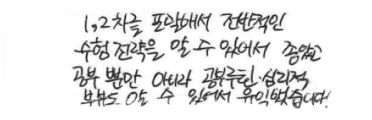 1,2차를 포함해서 전반적인
수험 전략을 알 수 있어서 좋았고
공부 뿐만 아니라 공부루틴·심리적
부분도 알 수 있어서 유익했습니다.